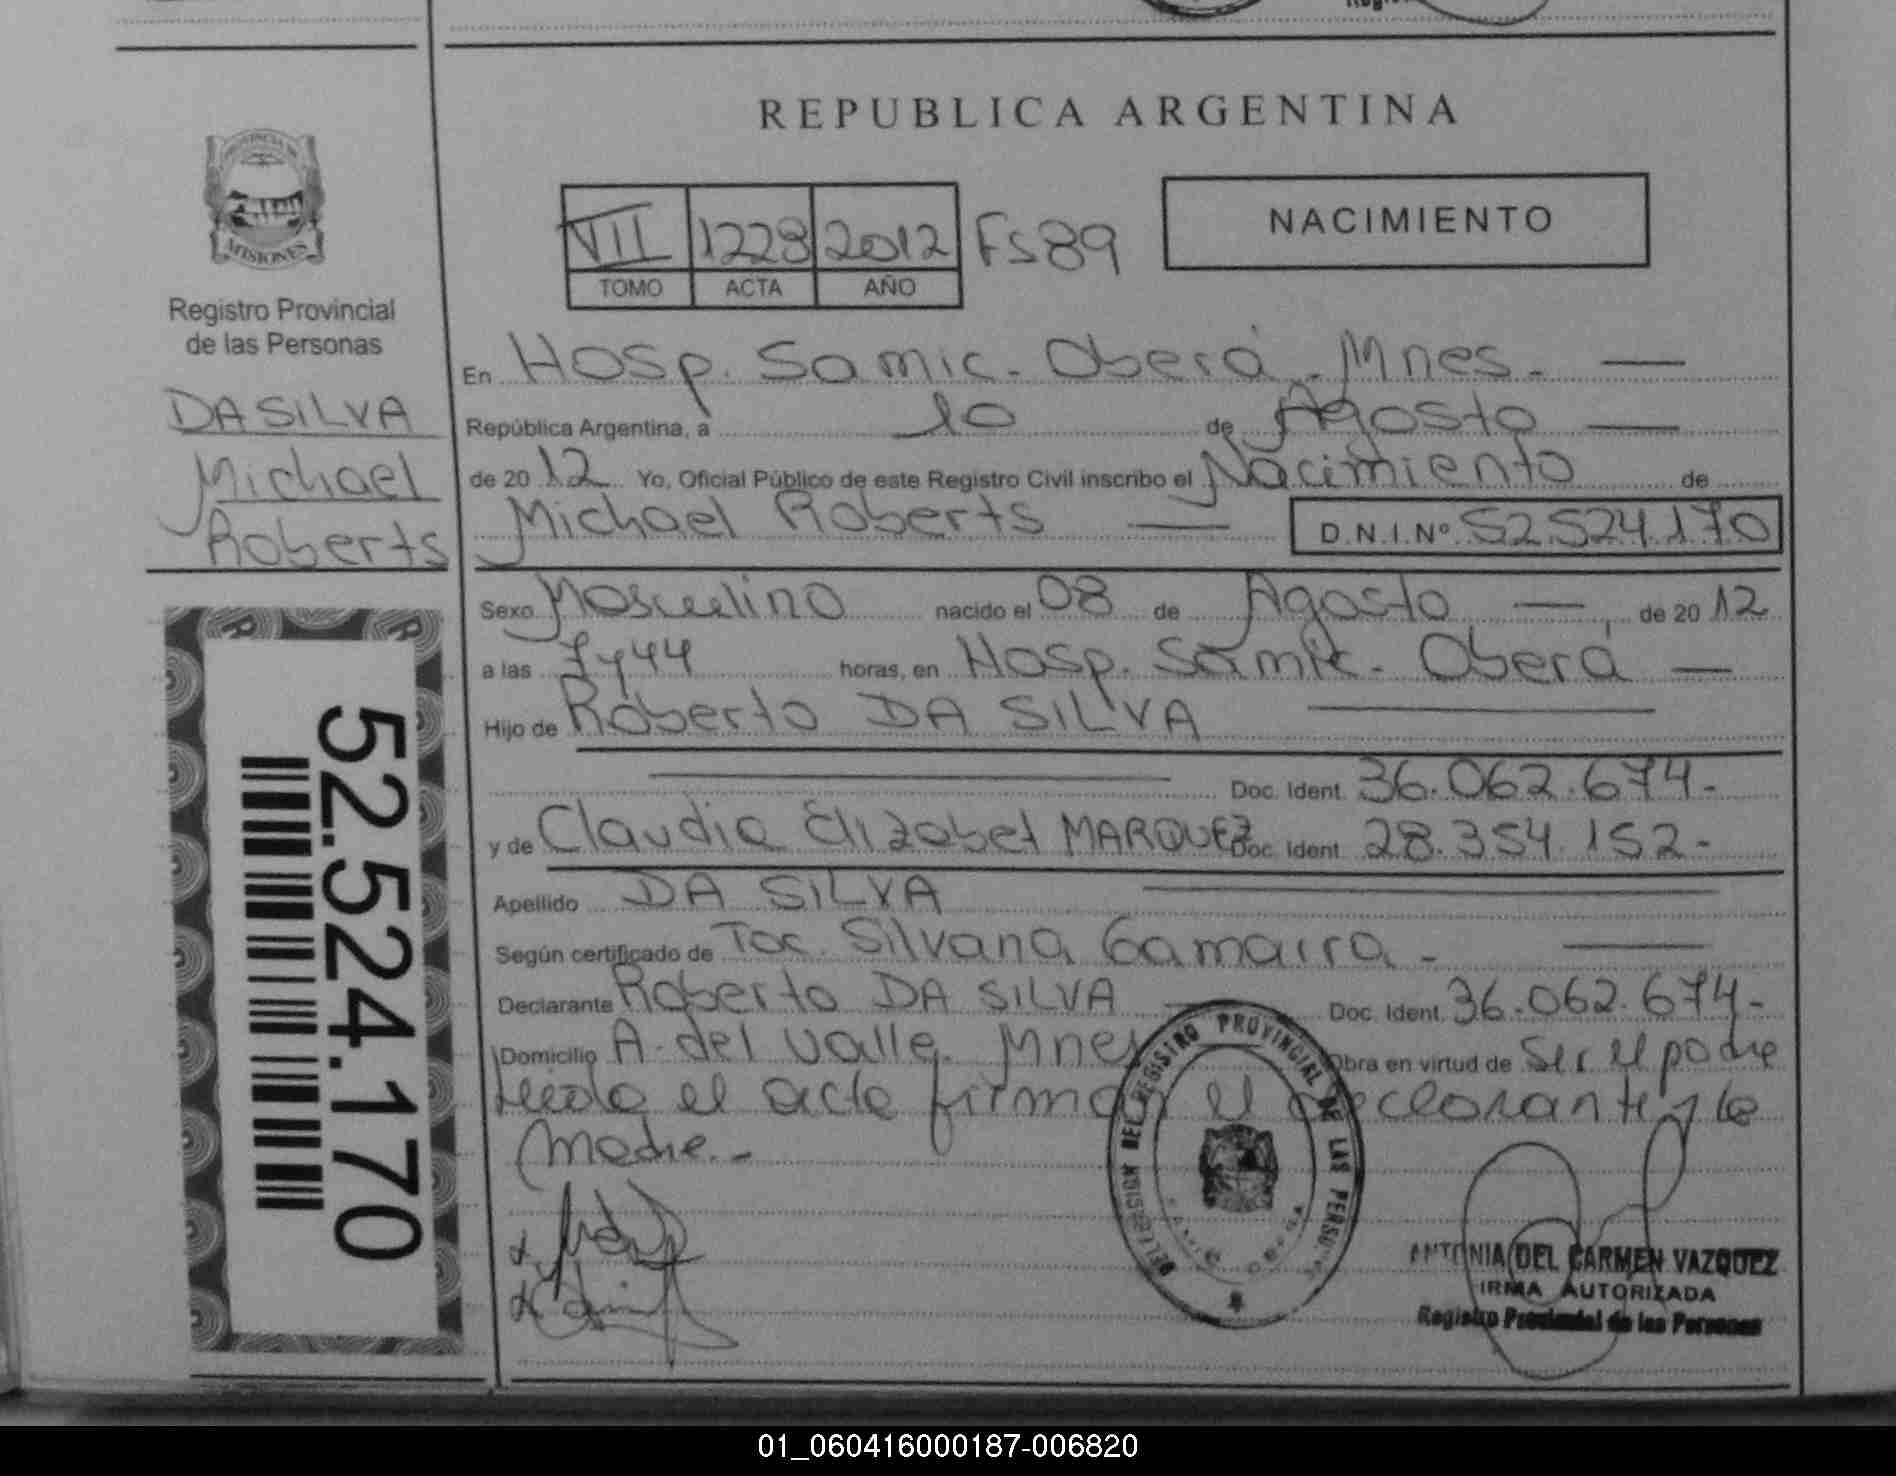 REPUBLICA ARGENTINA
PROVINCIA DE
MISIONES
Registro Provincial
de las Personas
DA SILVA
Michael
Roberts
52.524.170
VII 1228 2012 Fs 89
TOMO ACTA AÑO
NACIMIENTO
En Hosp. Samic. Oberá. Mnes.
República Argentina, a 10 de Agosto
de 2012 Yo, Oficial Público de este Registro Civil inscribo el Nacimiento de
Michael Roberts D.N.I.Nº 52.524.170
Sexo Masculino nacido el 08 de Agosto de 2012
a las 7y44 horas, en Hosp. Samic. Oberá
Hijo de Roberto DA SILVA
Doc. Ident. 36.062.674-
y de Claudia Elizabet MARQUEZ Doc. Ident. 28.354.152-
Apellido DA SILVA
Según certificado de Toc. Silvana Gamarra.-
Declarante Roberto DA SILVA Doc. Ident. 36.062.674-
Domicilio A. del Valle. Mnes Obra en virtud de ser el padre
leida el acta firman el declarante y la
madre.-
DELEGACION DEL REGISTRO PROVINCIAL DE LAS PERSO
ANTONIA DEL CARMEN VAZQUEZ
FIRMA AUTORIZADA
Registro Provincial de las Personas
01_060416000187-006820